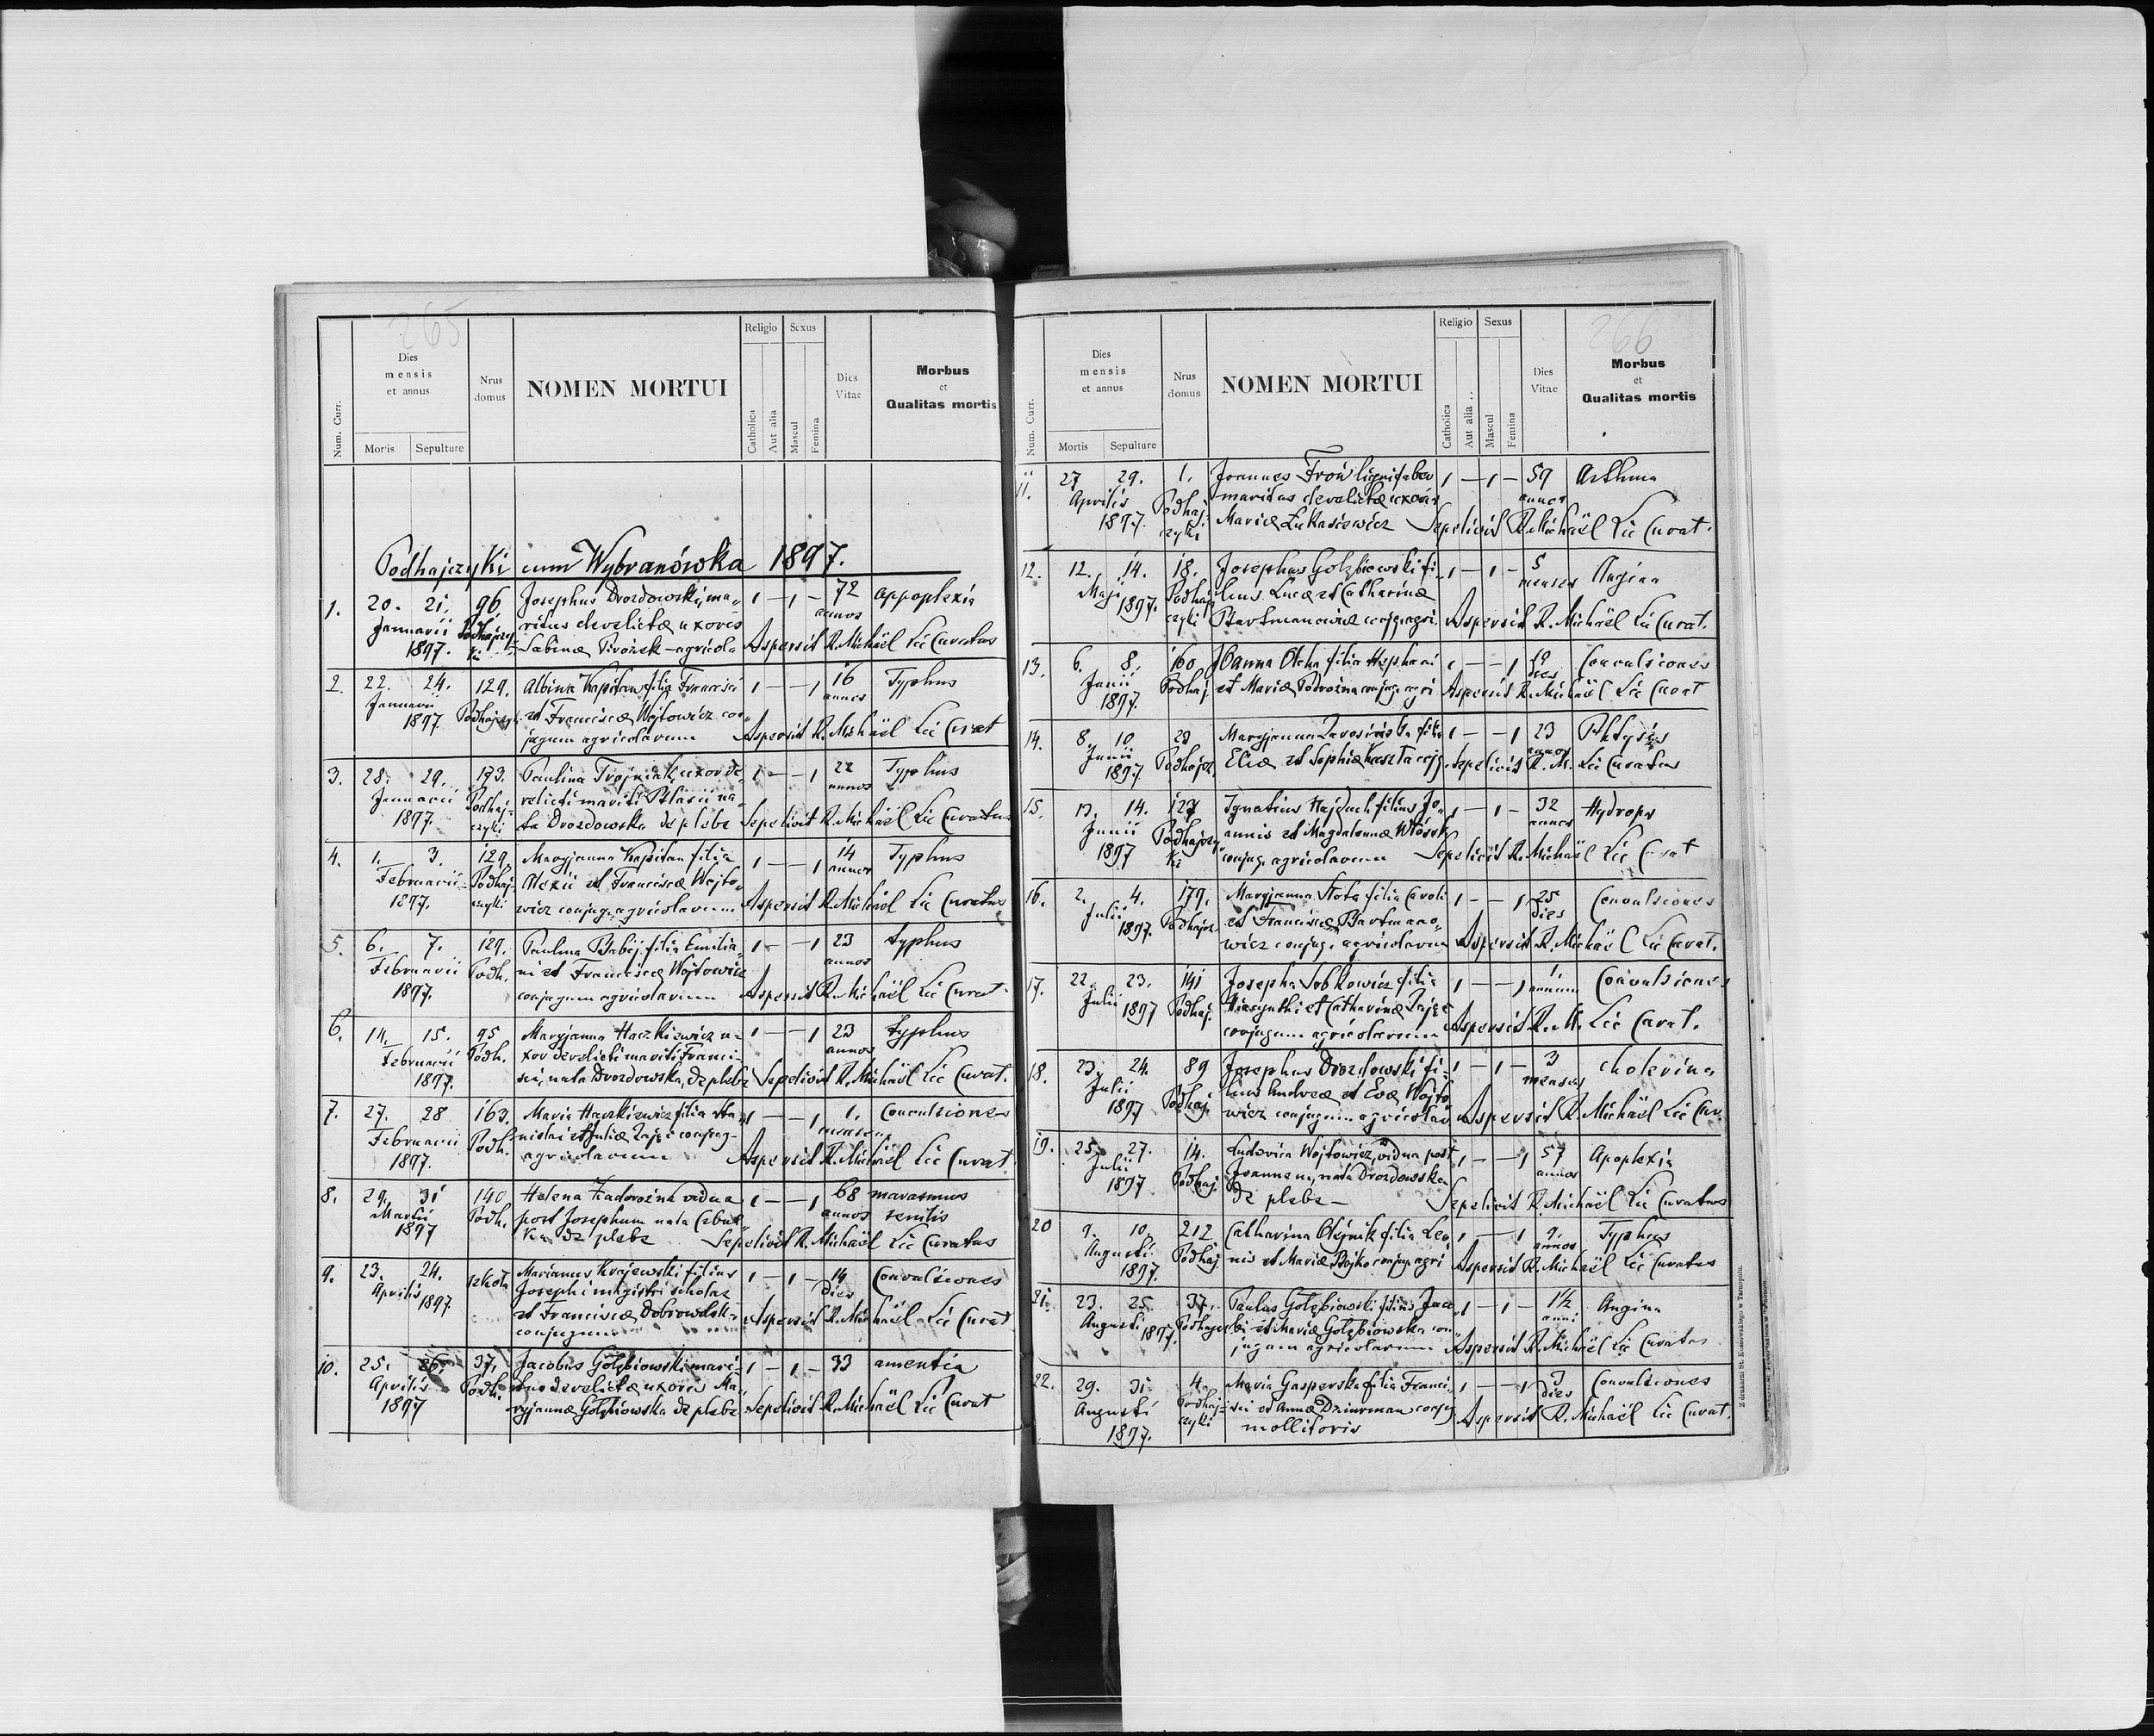 265
Num. Curr.
Dies mensis et annus
Mortis Sepulture
Nrus domus
NOMEN MORTUI
Religio
Catholica
Aut alia
Sexus
Mascul
Femina
Dies Vitae
Morbus et Qualitas mortis
Podhajczyki cum Wybranówka 1897.
1. 20. 21. 96 Josephus Drozdowski, ma- 1 — 1 — 72 appoplexia
Januarii Podhajczy- ritus derelictæ uxoris annos
1897. ki Sabinæ Pirożek - agricola Aspersit R. Michaël Lic Curatus
2. 22. 24. 129. Albina Kapitan filia Francisci 1 — — 1 16 Typhus
Januarii et Franciscæ Wojtowicz con- annos
1897. Podhajczyk. jugum agricolarum Aspersit R. Michaël Lic Curat
3. 28. 29. 173. Paulina Trojniak uxor de- 1 — — 1 22 Typhus
Januarii Podhaj- relicti mariti Blasii na- annos
1897. czyki ta Drozdowska de plebe Sepelivit R. Michaël Lic Curatus
4. 1. 3. 129. Maryjanna Kapitan filia 1 — — 1 14 Typhus
Februarii Podhaj- Alexii et Franciscæ Wojto- annos
1897. czyki wicz conjug. agricolarum Aspersit R. Michaël Lic Curatus
5. 6. 7. 129. Paulina Babij filia Emilia- 1 — — 1 23 typhus
Februarii Podh. ni et Franciscæ Wojtowicz annos
1897. conjugum agricolarum Aspersit R. Michaël Lic Curat.
6. 14. 15. 95 Maryjanna Haczkiewicz u- 1 — — 1 23 typhus
Februarii Podh. xor derelicti mariti Franci- annos
1897. sci, nata Drozdowska, de plebe Sepelivit R. Michaël Lic Curat.
7. 27. 28 163. Maria Haczkiewicz filia Sta- 1 — — 1 1. Convulsiones
Februarii Podh. nislai et Juliæ Zając conjug- mensem
1897. agricolarum Aspersit R. Michaël Lic Curat
8. 29. 31 140 Helena Zadorożna vidua 1 — — 1 68 marasmus
Martii Podh. post Josephum nata annos senilis
1897 de plebe Sepelivit R. Michaël Lic Curatus
9. 23. 24. szkoła Marianus Krajewski filius 1 — 1 — 14 Convulsiones
Aprilis Josephi magistri scholæ dies
1897. et Franciscæ Dobrowolska Aspersit R. Michaël Lic Curat
conjugum
10. 25. 26. 37. Jacobus Gołębiowski mari- 1 — 1 — 33 amentia
Aprilis Podh. tus derelictæ uxoris Ma-
1897 ryjannæ Gołębiowska de plebe Sepelivit R. Michaël Lic Curat
266
Num. Curr.
Dies mensis et annus
Mortis Sepulture
Nrus domus
NOMEN MORTUI
Religio
Catholica
Aut alia
Sexus
Mascul
Femina
Dies Vitae
Morbus et Qualitas mortis
11. 27 29. 1. Joannes Froń lignifaber 1 — 1 — 59 Asthma
Aprilis Podhaj- maritus derelictæ uxoris annos
1897. czyki Mariæ Łukasiewicz Sepelivit R. Michaël Lic Curat.
12. 12. 14. 18. Josephus Gołębiowski fi- 1 — 1 — 5 Angina
Maji Podhaj- lius Lucæ et Catharinæ menses
1897. czyki Bartmanowicz conjug. agri. Aspersit R. Michaël Lic Curat.
13. 6. 8. 160 Joanna Olcha filia Stephani 1 — — 1 19 Convulsiones
Junii Podhaj. et Mariæ Podrożna conjug. agri dies
1897. Aspersit R. Michaël Lic Curat
14. 8. 10 29 Maryjanna filia 1 — — 1 23 Phtysis
Junii Podhajcz. Eliæ et Sophiæ conj. annos
1897 Sepelivit R. M. Lic Curatus
15. 13. 14. 127 Ignatius Hajduk filius Jo- 1 — 1 — 32 Hydrops
Junii Podhajczy- annis et Magdalenæ annos
1897 ki conjug. agricolarum Sepelivit R. Michaël Lic Curat
16. 2. 4. 179. Maryjanna Słota filia Caroli 1 — — 1 25 Convulsiones
Julii Podhajcz. et Franciscæ Bartmano- dies
1897. wicz conjug. agricolarum Aspersit R. Michaël Lic Curat.
17. 22. 23. 141 Josepha Sobkowicz filia 1 — — 1 1. Convulsiones
Julii Podhaj. Hiacynthi et Catharinæ Zając annum
1897 conjugum agricolarum Aspersit R. M. Lic Curat.
18. 23. 24. 89 Josephus Drozdowski fi- 1 — 1 — 3 cholerina
Julii Podhaj. lius Andreæ et Evæ Wojto- menses
1897 wicz conjugum agricolar Aspersit R. Michaël Lic Cur.
19. 25. 27. 14. Ludovica Wojtowicz, vidua post 1 — — 1 57 Apoplexia
Julii Podhaj. Joannem, nata Drozdowska annos
1897 de plebe — Sepelivit R. Michaël Lic Curatus
20 9. 10. 212 Catharina Olejnik filia Leo- 1 — — 1 9. Typhus
Augusti Podhaj nis et Mariæ Bojko conjug. agri annos
1897. Aspersit R. Michaël Lic Curatus
21. 23. 25. 37. Paulus Gołębiowski filius Jaco- 1 — 1 — 1½ Angina
Augusti Podhajcz. bi et Mariæ Gołębiowska con- anni
1897. jugum agricolarum Aspersit R. Michaël Lic Curatus
22. 29. 31. 4. Maria Gasperska filia Franci- 1 — — 1 3 Convulsiones
Augusti Podhaj- sci et Annæ Dziurman conjug dies
1897. czyki mollitoris Aspersit R. Michaël Lic Curat.
Z drukarni St. Kossowskiego w Tarnopolu.